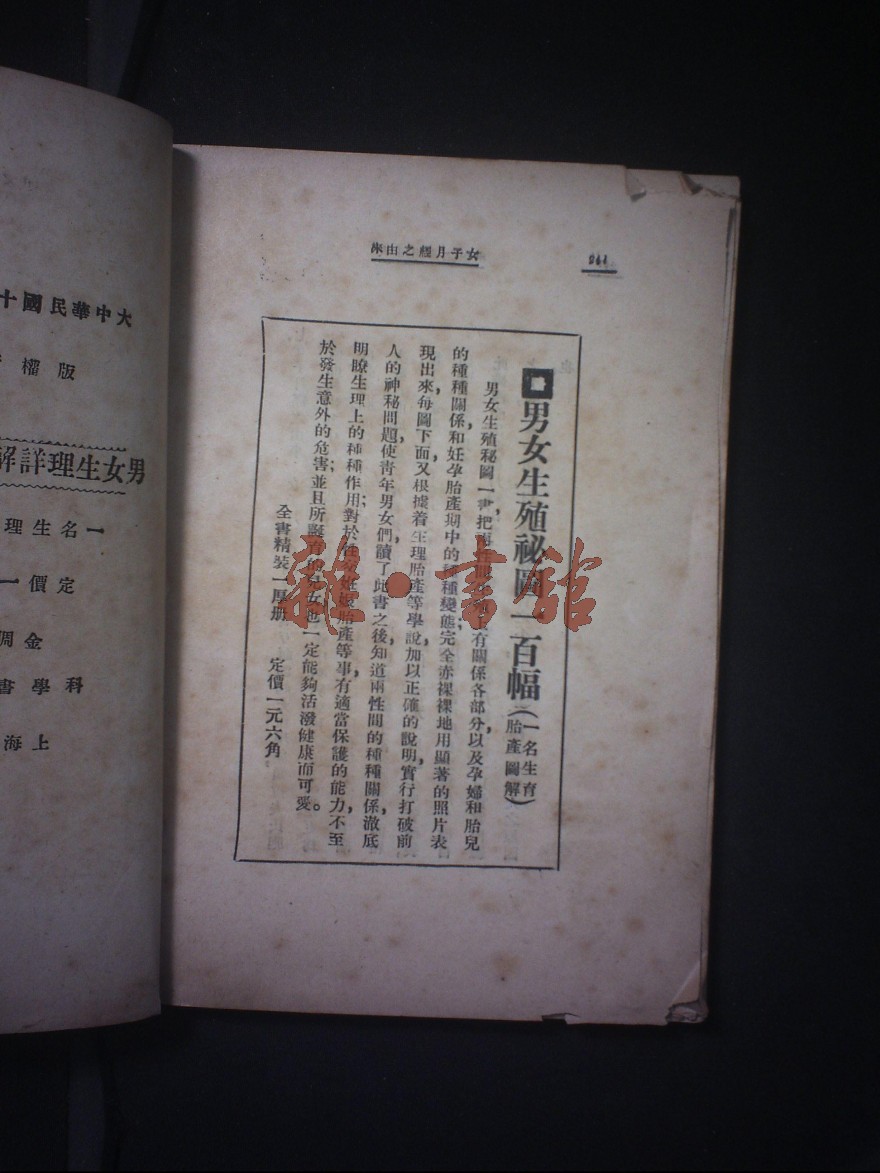 女子月經之由來
男女生殖祕圖一百幅(一名生育胎產圖解)
男女生殖秘圖一書，把有關係各部分以及孕婦和胎兒
的種種關係，和妊孕胎產期中的種種變態，完全赤裸裸地用顯著的照片表
現出來，每圖下面，又根據着生理胎產等學說，加以正確的說明，實行打破前
人的神秘問題，使青年男女們，讀了此書之後，知道兩性間的種種關係，澈底
明瞭生理上的種種作用；對於胎產等事，有適當保護的能力，不至
於發生意外的危害；並且所誕育的兒女，也一定能夠活潑健康而可愛。
全書精裝一厚册 定價一元六角
大中華民國十
版權
男女生理詳解
一名生理
定價一
金
科學書
上海
雜·書館